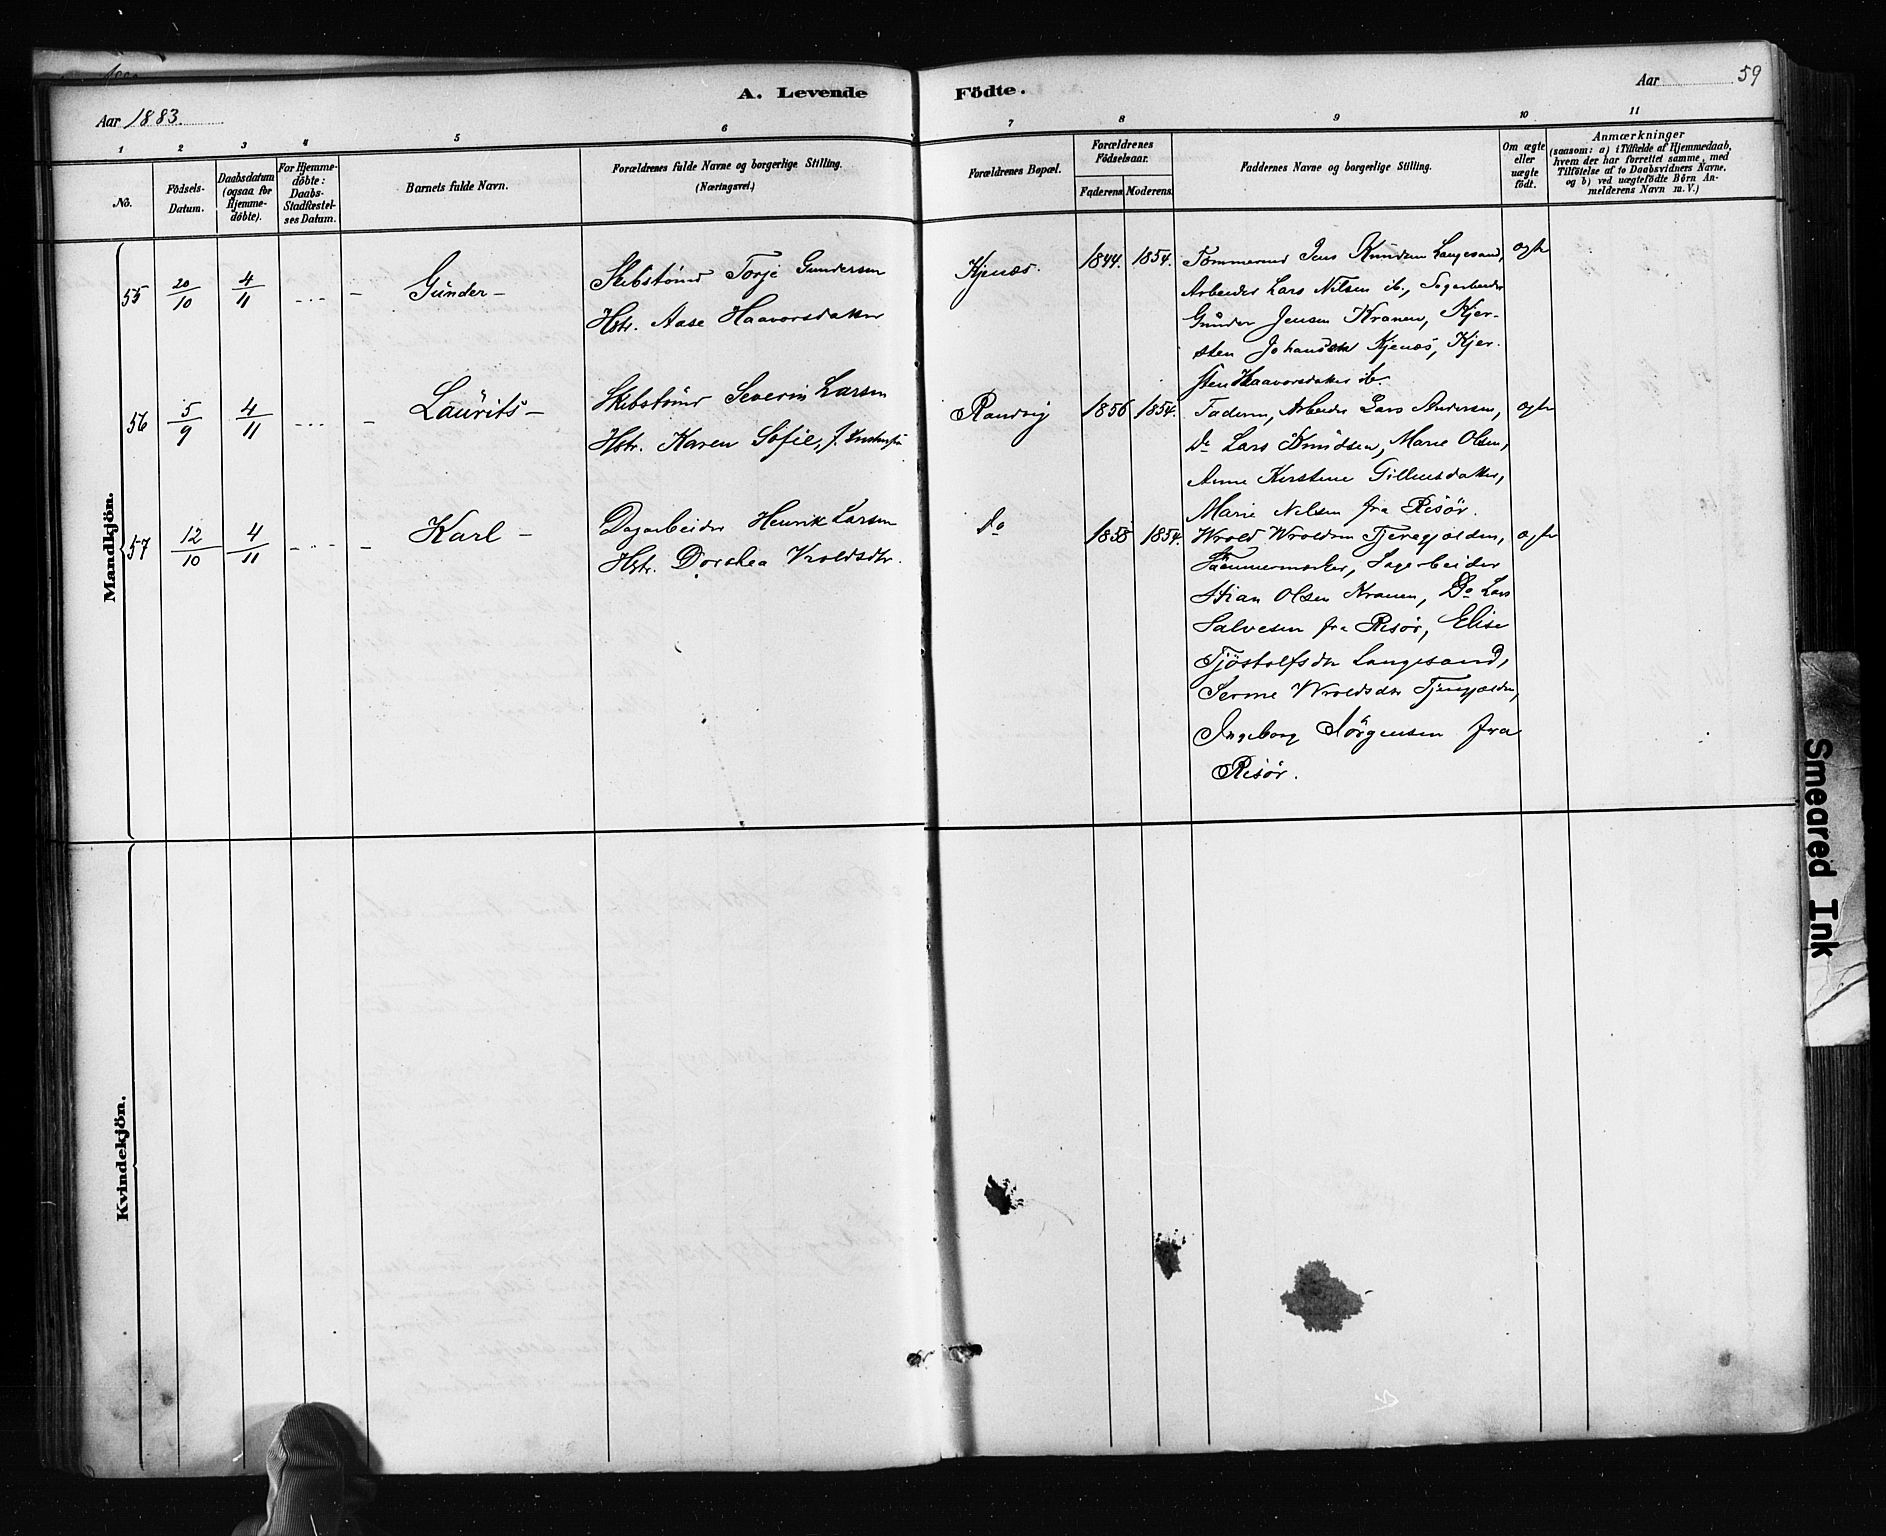 59
A. Levende Födte.
Aar 1883.
Aar
1 2 3 4 5 6 7 8 9 10 11
No.
Födsels-
Datum.
Daabsdatum
(ogsaa for
Hjemme-
döbte).
For Hjemme-
döbte:
Daabs-
Stadfæstel-
ses Datum.
Barnets fulde Navn.
Forældrenes fulde Navne og borgerlige Stilling.
(Næringsvei.)
Forældrenes Bopæl.
Forældrenes
Födselsaar.
Faderens Moderens.
Faddernes Navne og borgerlige Stilling.
Om ægte
eller
uægte
födt.
Anmærkninger
(saasom: a) i Tilfælde af Hjemmedaab,
hvem der har forrettet samme, med
Tilföielse af to Daabsvidners Navne.
og b) ved uægtefödte Börn An-
melderens Navn m. V.)
Mandkjön.
55 20/10 4/11 Gunder -
Skibstømd Torje Gundersen
Hstr. Aase Haavorsdatter
Kjenæs. 1844. 1854.
Tömmermd Jens Knudsen Langesand,
Arbeider Lars Nilsen ib., Sagarbeider
Gunder Jensen Kranen, Kjer-
sten Johansen Kjenæs, Kjer-
sten Haavorsdatter ib.
ægte
56 5/9 4/11 Laurits -
Skibstømd Severin Larsen
Hstr. Karen Sofie, f.
Randvig 1856 1854.
Faderen, Arbeider Lars Andersen,
Do Lars Knudsen, Marie Olsen,
Anne Kirstine Gilleusdatter,
Marie Nilsen fra Risør.
ægte
57 12/10 4/11 Karl -
Dagarbeider Henrik Larsen
Hstr. Dorthea Vroldsdtr.
Do 1858 1854.
Wrold Wroldsen Tjeregjolden,
Sagarbeider
Stian Olsen Kranen, Do Lars
Salvesen fra Risør, Elise
Tjöstolfsdtr Langesand,
Wroldsdtr
Ingeborg Jörgensen fra
Risør.
ægte
Kvindekjön.
Smeared Ink